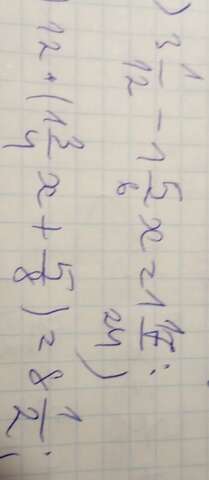 ) 3 1/12 - 1 5/6 x = 1 17/24;
) 12 + (1 3/4 x + 5/8) = 8 1/2;